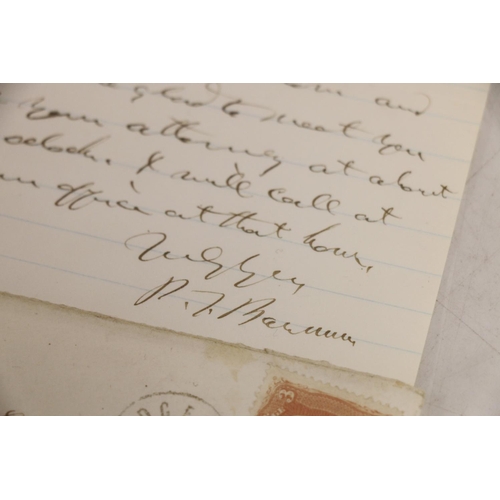 and
glad to meet you
your attorney at about
oclock. I will call at
office at that hour,
Truly Yours
P. T. Barnum
3